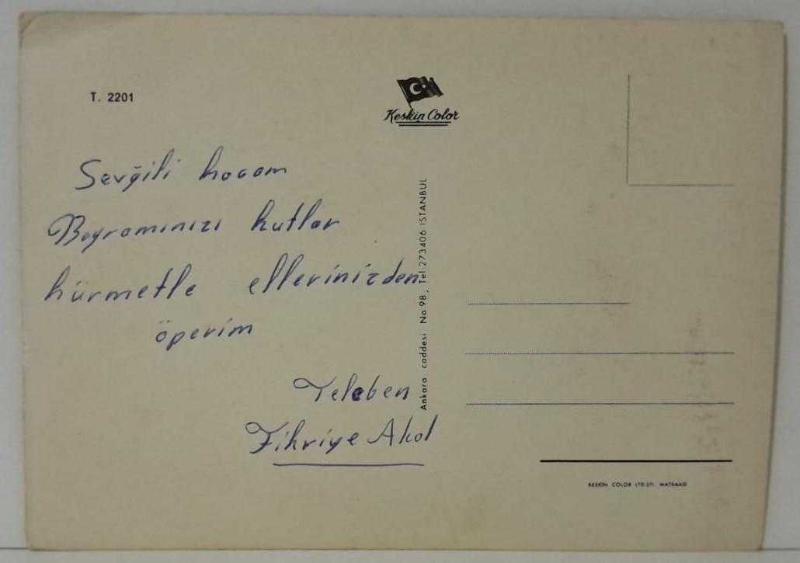 T. 2201
Keskin Color
Sevgili hocam
Bayramınızı kutlar
hürmetle ellerinizden
öperim
Taleben
Fikriye Akol
Ankara caddesi No 98, Tel 273406 İSTANBUL
KESKİN COLOR LTD. ŞTİ. MATBAASI